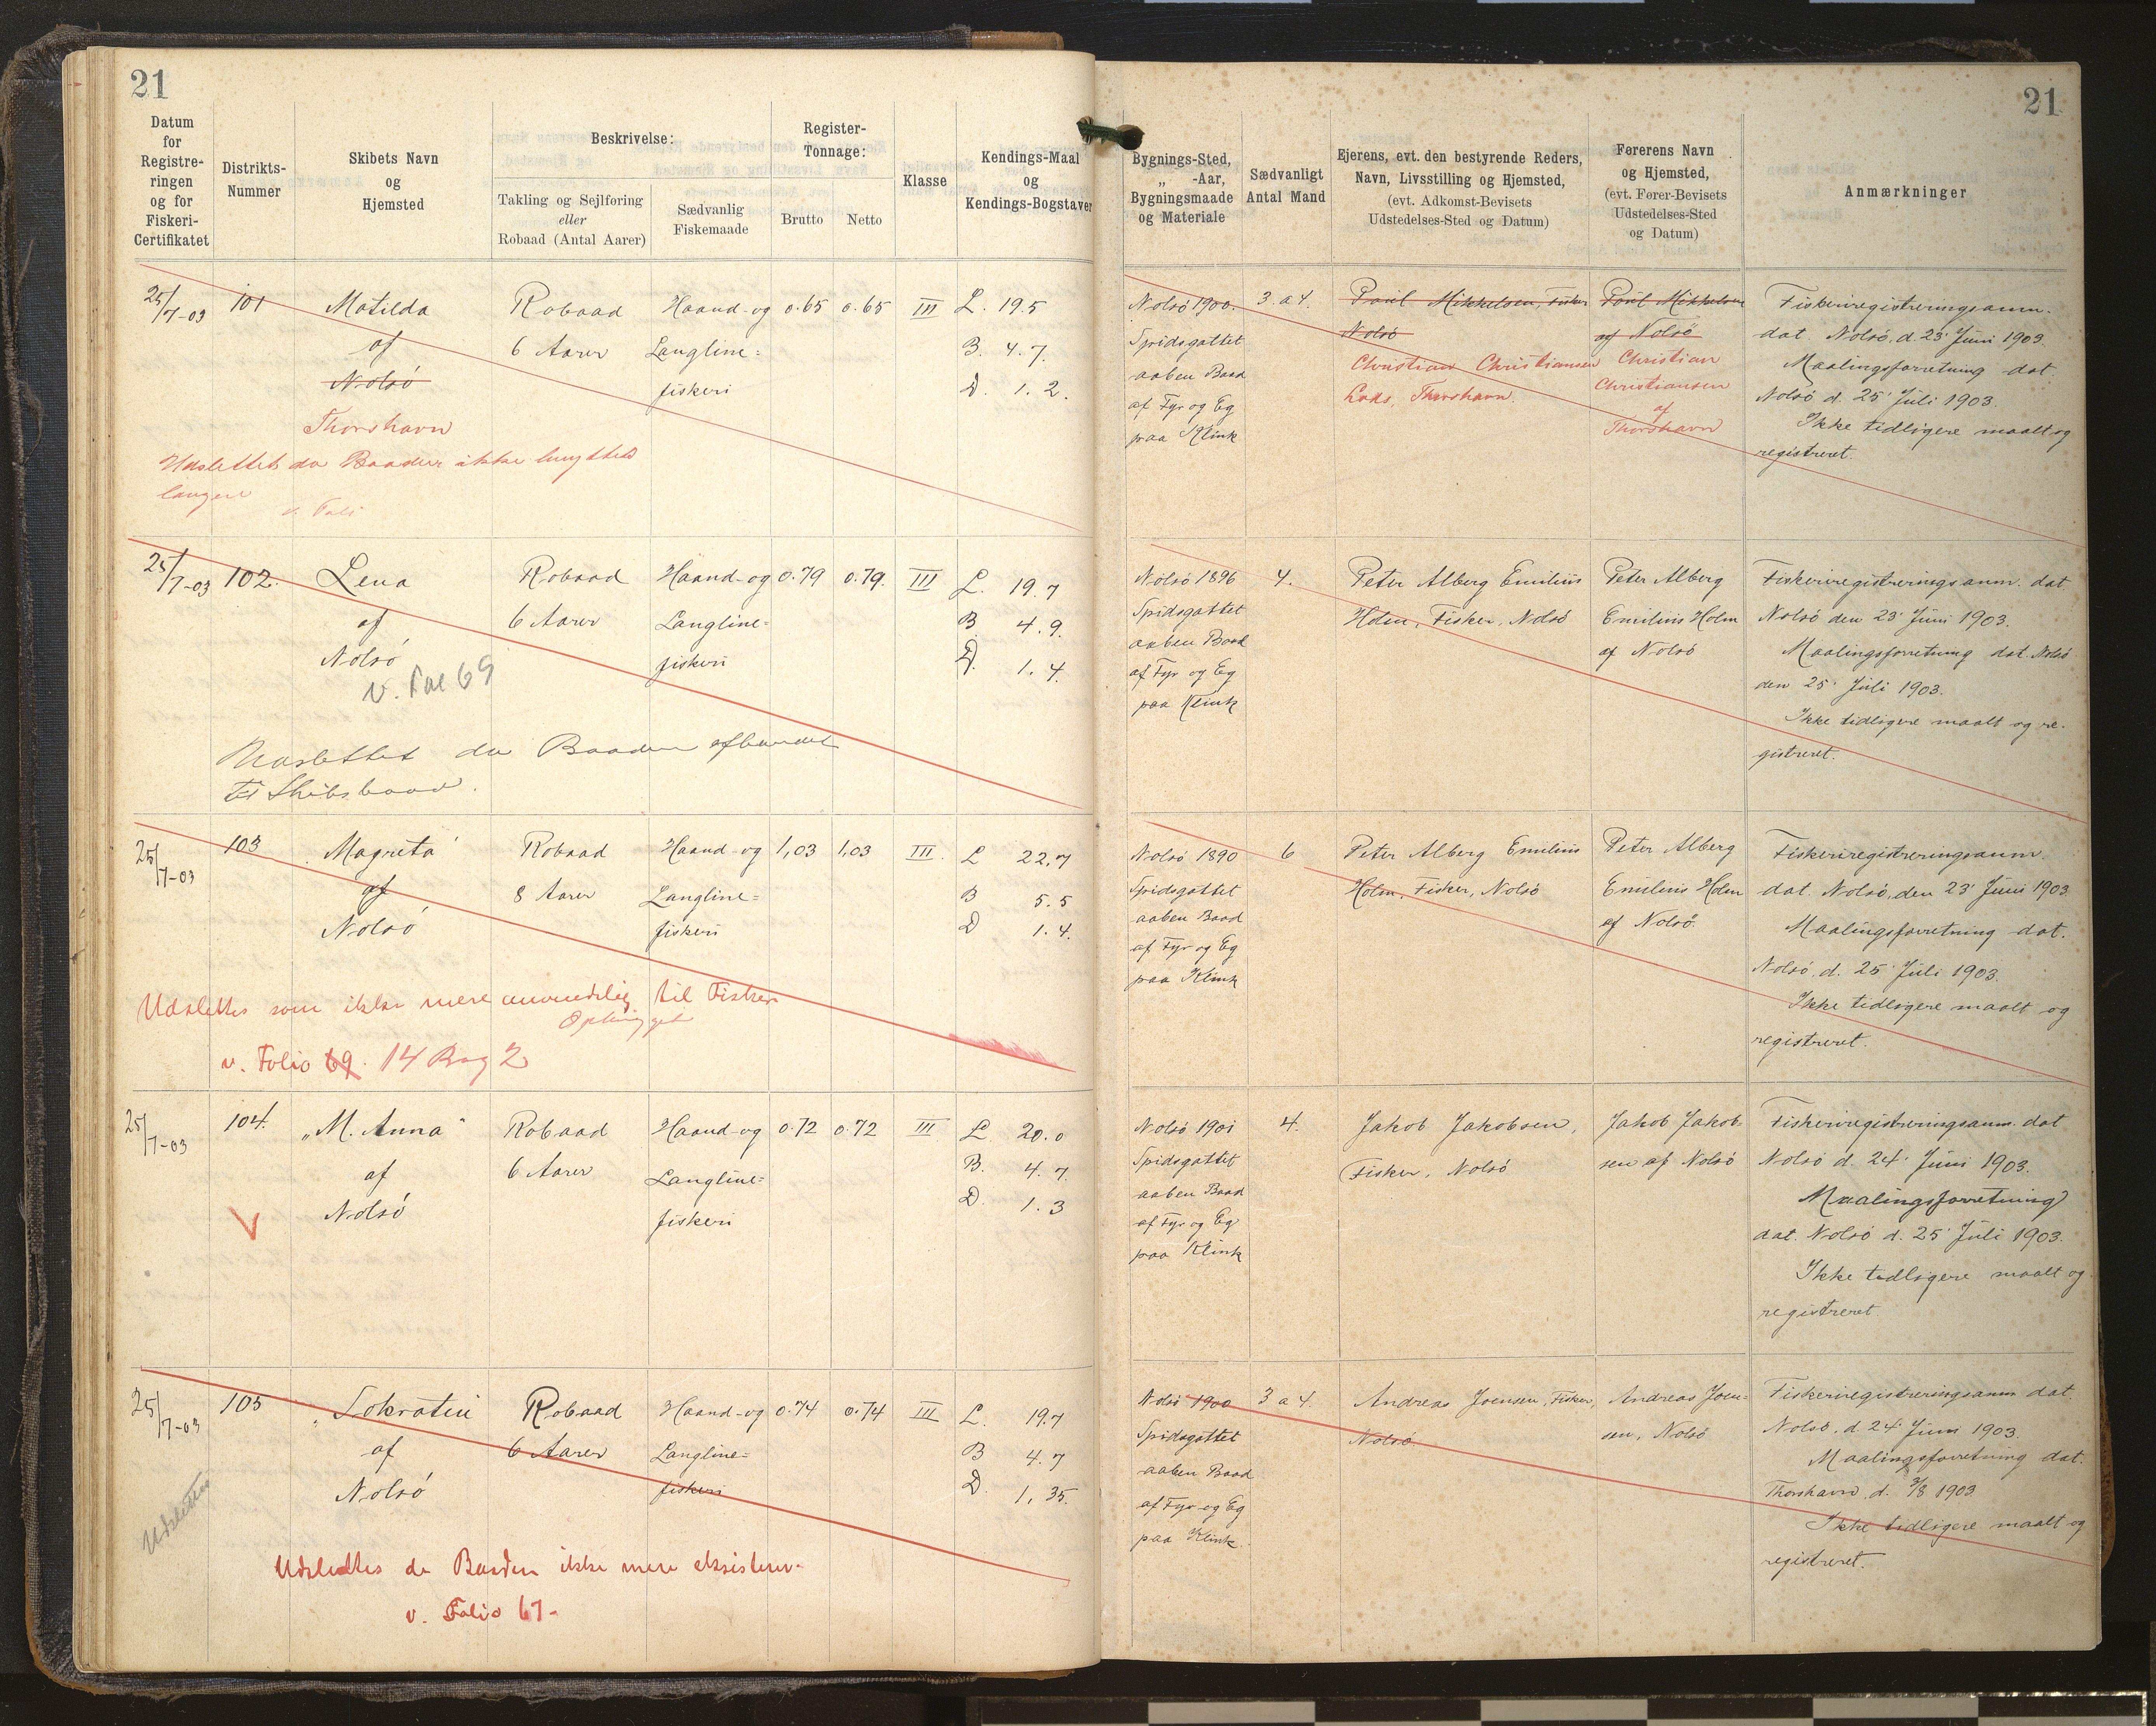 21
21
Datum
for
Registre-
ringen
og for
Fiskeri-
Certifikatet
Distrikts-
Nummer
Skibets Navn
og
Hjemsted
Beskrivelse:
Takling og Sejlføring
eller
Robaad (Antal Aarer)
Sædvanlig
Fiskemaade
Register-
Tonnage:
Brutto
Netto
Klasse
Kendings-Maal
og
Kendings-Bogstaver
Bygnings-Sted,
„ -Aar,
Bygningsmaade
og Materiale
Sædvanligt
Antal Mand
Ejerens, evt. den bestyrende Reders,
Navn, Livsstilling og Hjemsted,
(evt. Adkomst-Bevisets
Udstedelses-Sted og Datum)
Førerens Navn
og Hjemsted,
(evt. Fører-Bevisets
Udstedelses-Sted
og Datum)
Anmærkninger
25/7-03
101
Matilda
af
Nolsö
Thorshavn
Robaad
6 Aarer
Haand-og
Langline=
fiskeri
0.65
0.65
III
L. 19.5
B. 4.7.
D. 1.2.
Nolsö 1900.
Spidsgattet
aaben Baad
af Fyr og Eg
paa Klink
3 a 4.
Poul Mikkelsen, Fisker
Nolsö
Christian Christiansen
Lods, Thorshavn.
Poul Mikkelsen
af Nolsö
Christian
Christiansen
af
Thorshavn
Fiskeriregistreringsanm.
dat. Nolsö, d. 23' Juni 1903.
Maalingsforretning dat.
Nolsö d. 25' Juli 1903.
Ikke tidligere maalt og
registreret.
Udslettet da Baaden ikke benyttes
længere
25/7-03
102.
Lena
af
Nolsö
v. Fol 69
Robaad
6 Aarer
Haand-og
Langline=
fiskeri
0.79
0.79.
III
L. 19.7
B 4.9.
D. 1.4.
Nolsö 1896
Spidsgattet
aaben Baad
af Fyr og Eg
paa Klink
4.
Peter Alberg Emilius
Holm, Fisker, Nolsö
Peter Alberg
Emilius Holm
af Nolsö
Fiskeriregistreringsanm. dat
Nolsö den 23' Juni 1903.
Maalingsforretning dat. Nolsö
den 25' Juli 1903.
Ikke tidligere maalt og re-
gistreret.
Udslettet da Baaden
til Skibsbaad.
25/7-03
103
Magreta
af
Nolsö
Robaad
8 Aarer
Haand-og
Langline=
fiskeri
1,03
1,03
III.
L 22,7
B 5.5
D 1.4.
Nolsö 1890
Spidsgattet
aaben Baad
af Fyr og Eg
paa Klink
6
Peter Alberg Emilius
Holm, Fisker, Nolsö
Peter Alberg
Emilius Holm
af Nolsö.
Fiskeriregistreringsanm.
dat. Nolsö, den 23' Juni 1903
Maalingsforretning dat.
Nolsö, d. 25' Juli 1903.
Ikke tidligere maalt og
registreret.
Udslettes som ikke mere anvendelig til Fiskeri
Ophugget
v. Folio 69. 14 Bog 2
25/7-03
104.
„M. Anna"
af
Nolsö
V
Robaad
6 Aarer
Haand-og
Langline=
fiskeri
0.72
0.72
III
L. 20.0
B. 4.7.
D. 1.3
Nolsö 1901
Spidsgattet
aaben Baad
af Fyr og Eg
paa Klink
4.
Jakob Jakobsen,
Fisker, Nolsö
Jakob Jakob-
sen af Nolsö
Fiskeriregistreringsanm. dat
Nolsö d. 24' Juni 1903.
Maalingsforretning
dat. Nolsö d. 25' Juli 1903.
Ikke tidligere maalt og
registreret
25/7-03
105
„Sokratin
af
Nolsö
Udslettes
Robaad
6 Aarer
Haand-og
Langline=
fiskeri
0.74
0.74
III
L. 19.7
B 4.7
D. 1,35.
Nolsö 1900
Spidsgattet
aaben Baad
af Fyr og Eg
paa Klink.
3 a 4.
Andreas Joensen, Fisker,
Nolsö.
Andreas Joen=
sen, Nolsö
Fiskeriregistreringsanm dat.
Nolsö, d 24' Juni 1903.
Maalingsforretning dat.
Thorshavn, d. 3/8 1903
Ikke tidligere maalt og
registreret.
Udslettes da Baaden ikke mere eksisterer.
v. Folio 67-